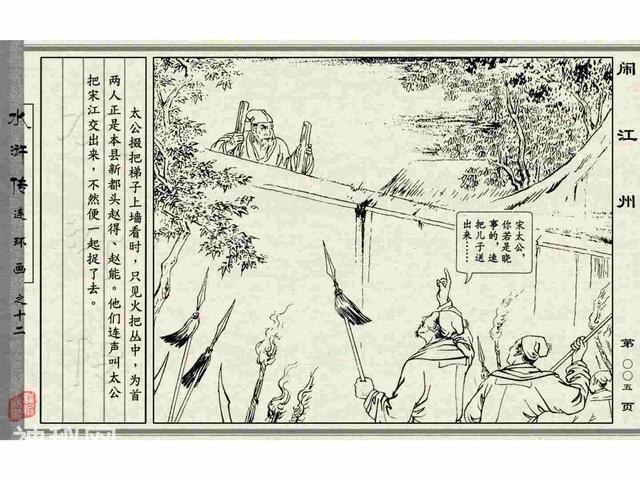 闹江州
第〇〇五页
宋太公，
你若是晓
事的，速
把儿子送
出来……
太公掇把梯子上墙看时，只见火把丛中，为首
两人正是本县新都头赵得、赵能。他们连声叫太公
把宋江交出来，不然便一起捉了去。
水浒传连环画之十二